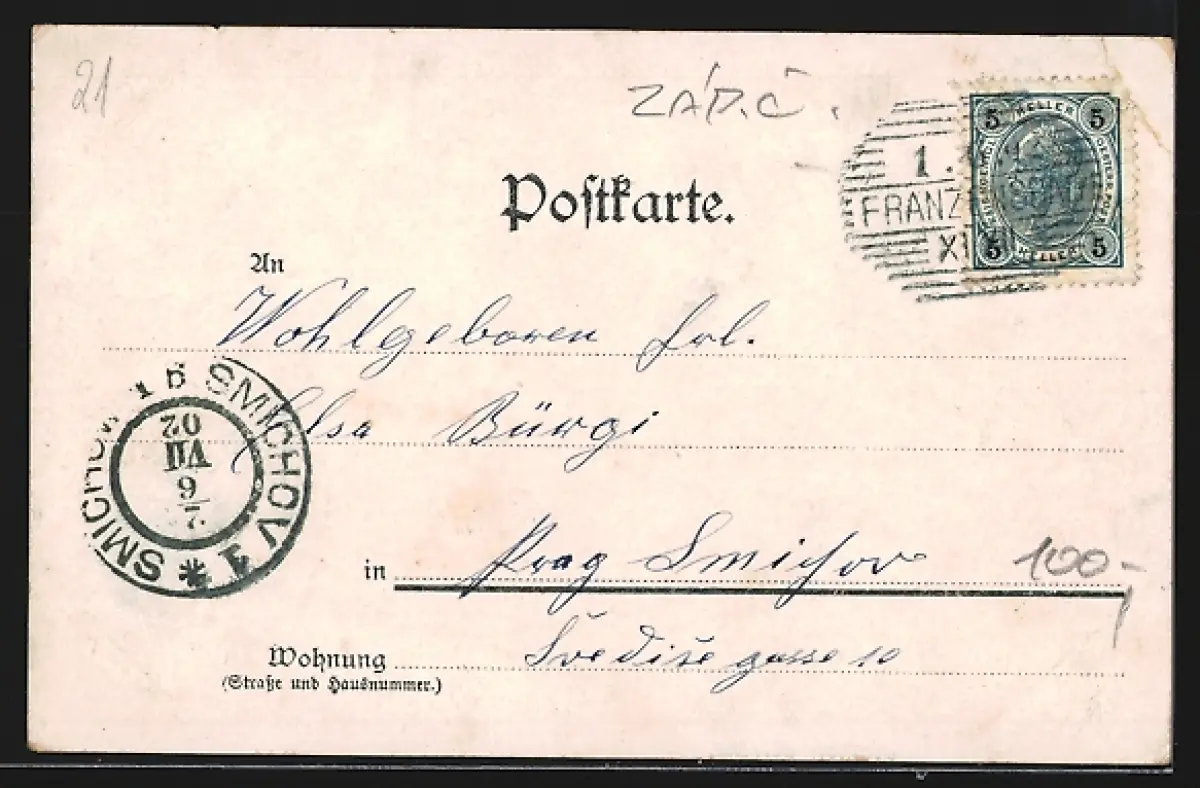 21
ZÁP.Č.
Postkarte.
5 HELLER 5
5 HELLER 5
1.
FRANZ
An
Wohlgeboren Frl.
Elsa Bürgi
SMICHOW 1 b SMICHOV
02
VII
9
7
in Prag Smichov
100-
Wohnung Švedische gasse 10
(Straße und Hausnummer.)